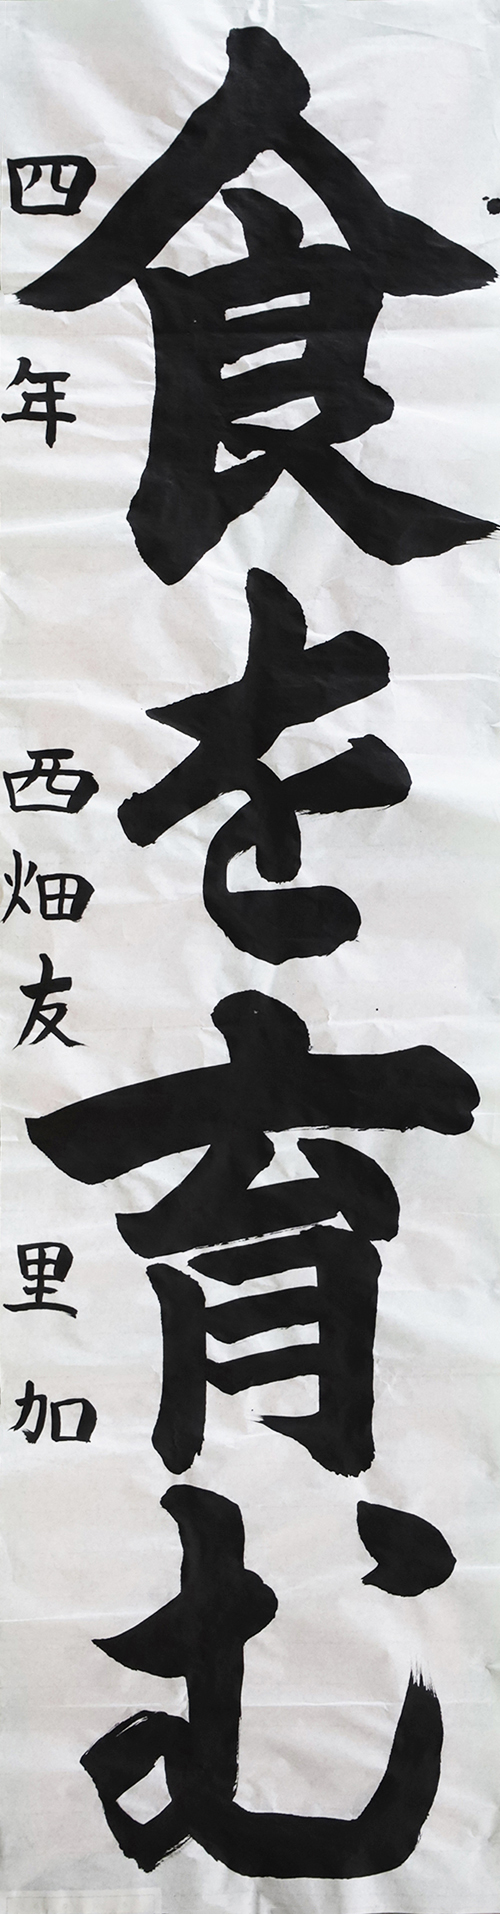 食を育む
四年 西畑友里加